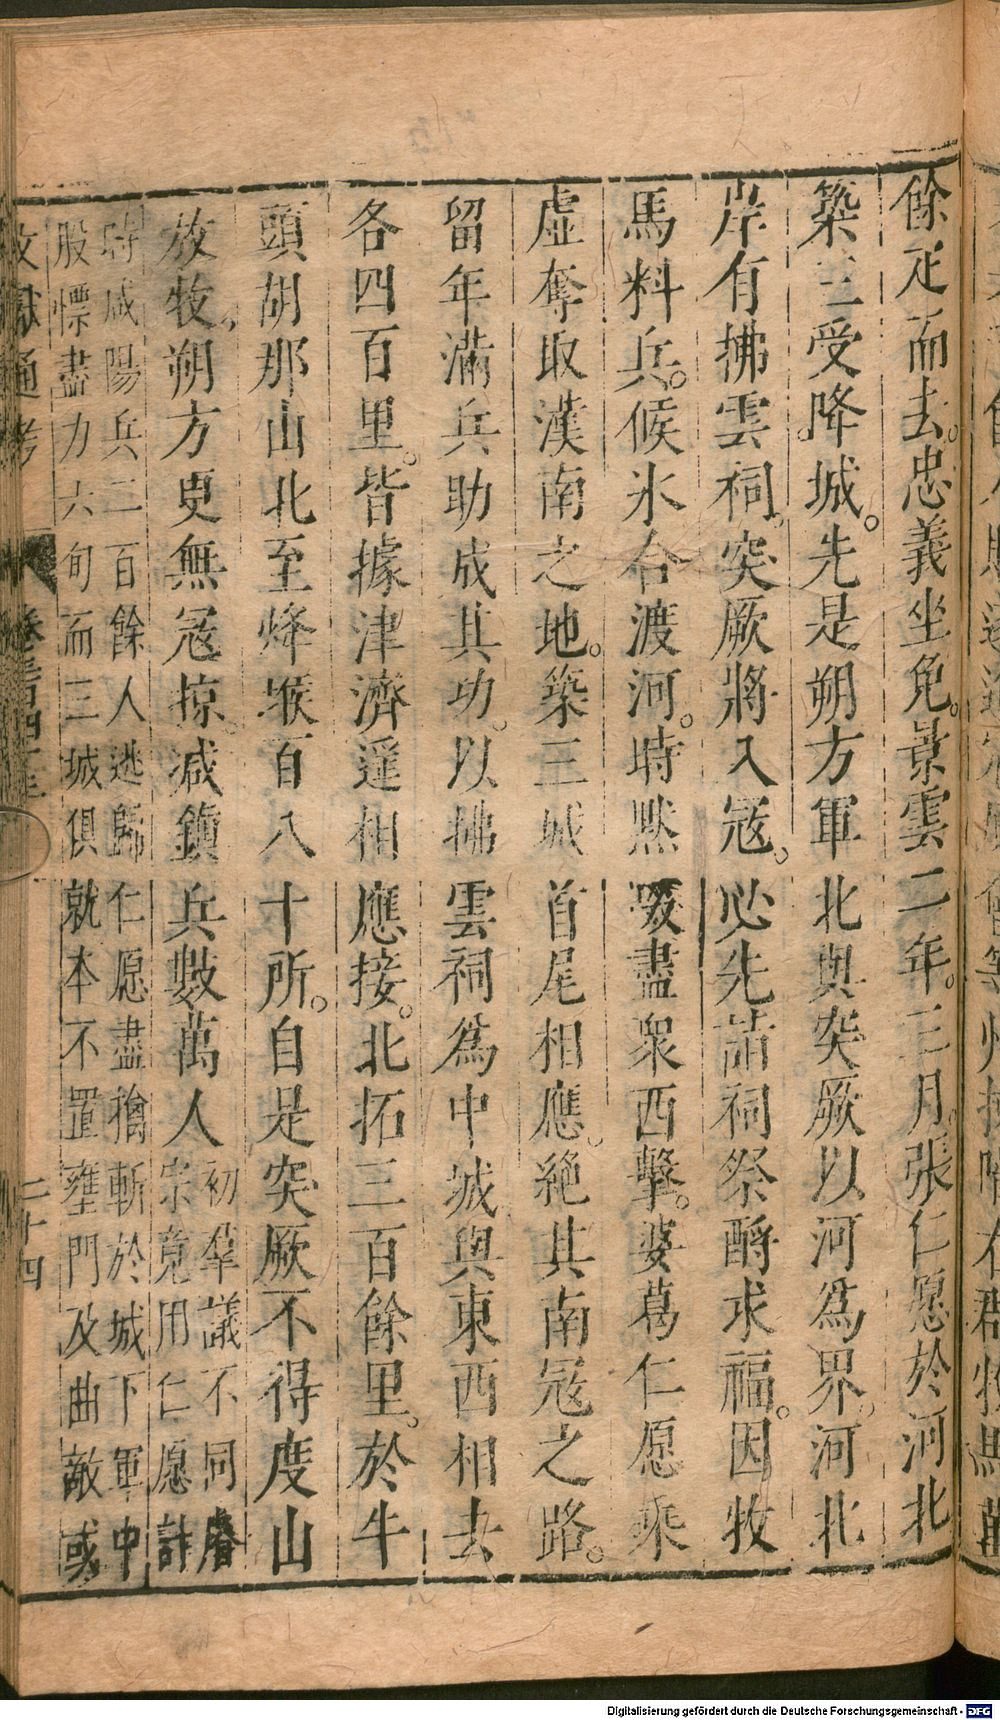 餘疋而去。忠義坐免。景雲二年。三月。張仁愿於河北
築三受降城。先是朔方軍北與突厥以河爲界。河北
岸有拂雲祠。突厥將入寇。必先詣祠祭酹求福。因牧
馬料兵。候氷合渡河。時默啜盡衆西擊。婆葛仁愿乘
虛奪取漢南之地。築三城首尾相應。絕其南寇之路。
留年滿兵助成其功。以拂雲祠爲中城與東西相去
各四百里。皆據津濟遥相應接。北拓三百餘里。於牛
頭胡那山北至烽堠百八十所。自是突厥不得度山
放牧。朔方更無寇掠。減鎮兵數萬人
初羣議不同睿
宗竟用仁愿計
時咸陽兵二百餘人逃歸仁愿盡擒斬於城下軍中
股慄盡力六旬而三城俱就本不置壅門及曲敵或
文獻通考 卷三百四十 二十四
Digitalisierung gefördert durch die Deutsche Forschungsgemeinschaft - DFG